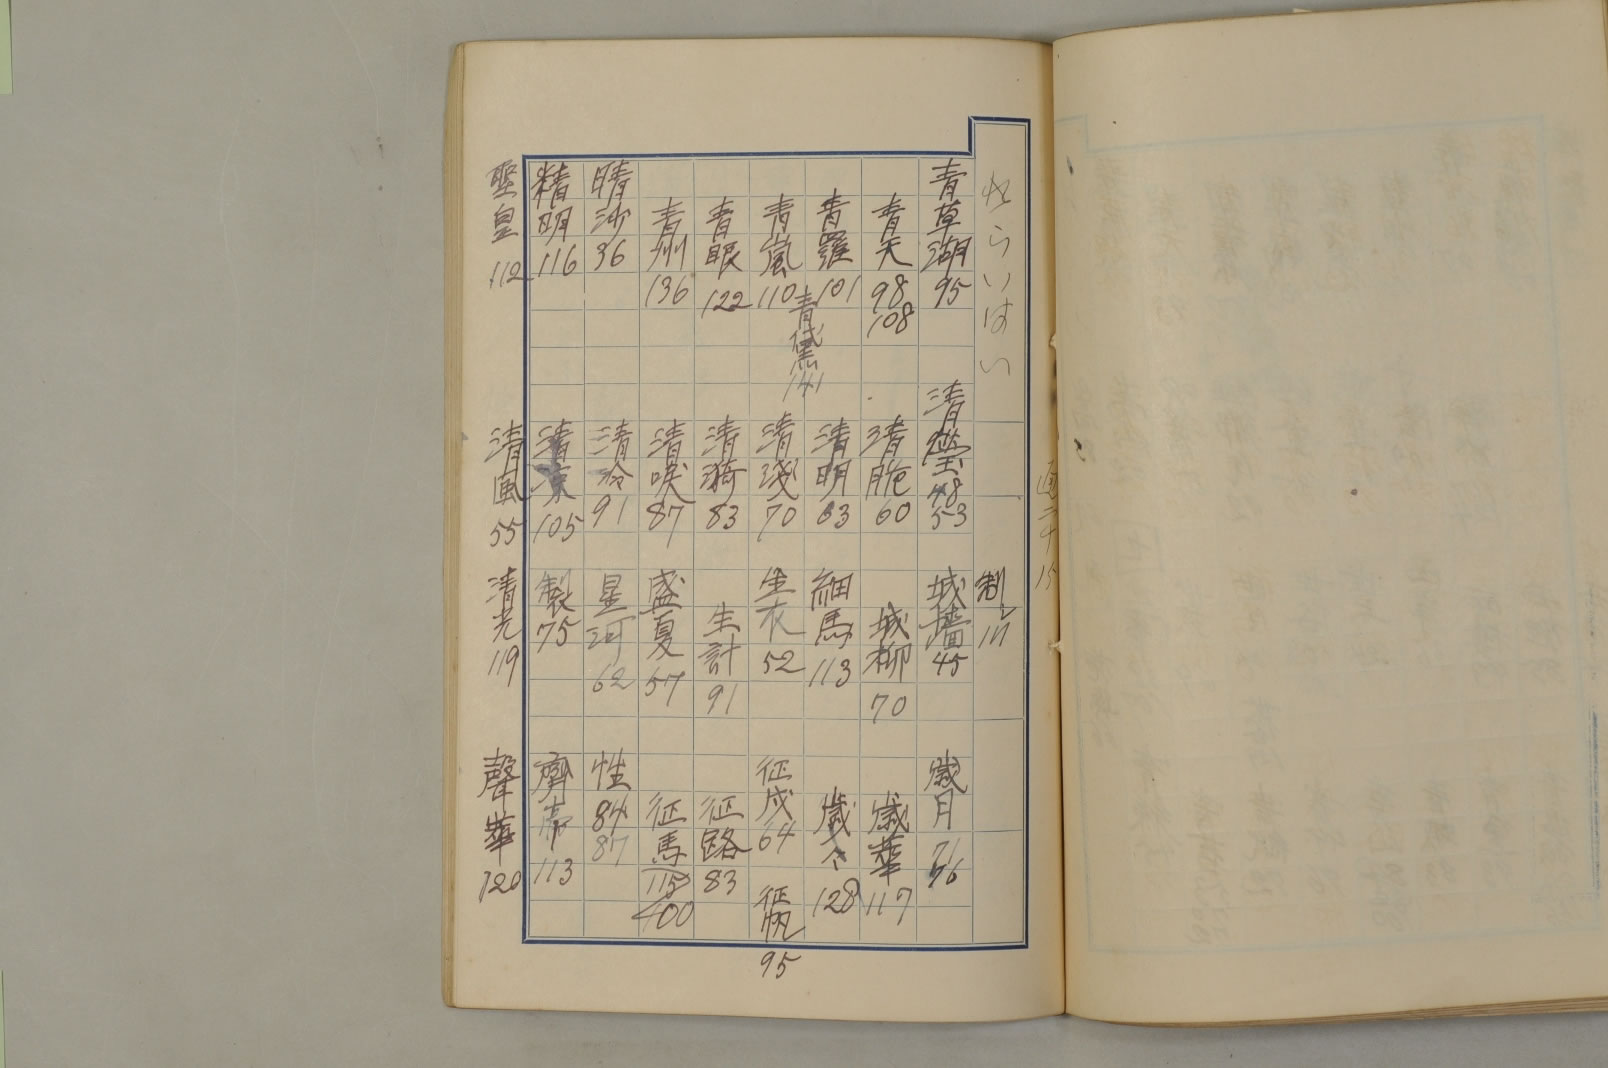 せらいはい
制 111
青草湖 95
清瑩 48 53
城墻 45
歳月 71 76
青天 98 108
清脆 60
城柳 70
歳華 117
青羅 101
清明 63
細馬 113
歳今 128
青嵐 110
青黛 141
清淺 70
生衣 52
征戍 64
征帆 95
青眼 122
清漪 83
生計 91
征路 83
青州 136
清唳 87
盛夏 57
征馬 115 100
晴沙 36
清冷 91
星河 62
性 84 87
精明 116
清涼 105
製 75
齊帝 113
聖皇 112
清風 55
清光 119
聲華 120